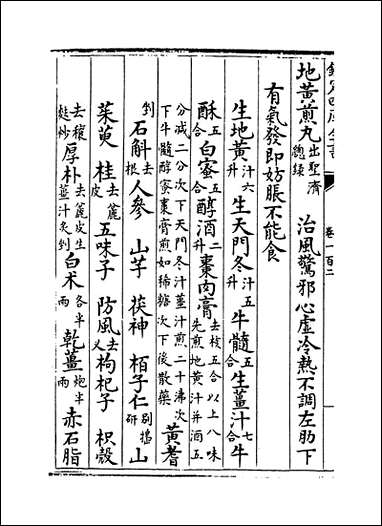 欽定四庫全書 卷一百二
地黄煎丸出聖濟總錄 治風驚邪心虛冷熱不調左肋下
有氣發即妨脹不能食
生地黄汁六升 生天門冬汁五升 牛髓五合 生薑汁七合 牛
酥五合 白蜜五合 醇酒二升 棗肉膏去核五合以上八味先煎地黄汁并酒五
分減二分次下天門冬汁薑汁煎二十沸次下牛髓酥蜜棗膏煎如稀糖次下後散藥 黄耆
剉 石斛去根 人參 山芋 茯神 栢子仁别搗研 山
茱萸 桂去麄皮 五味子 防風去叉 枸杞子 枳殼
去穰麩炒 厚朴去麄皮生薑汁炙剉 白术各半兩 乾薑炮半兩 赤石脂